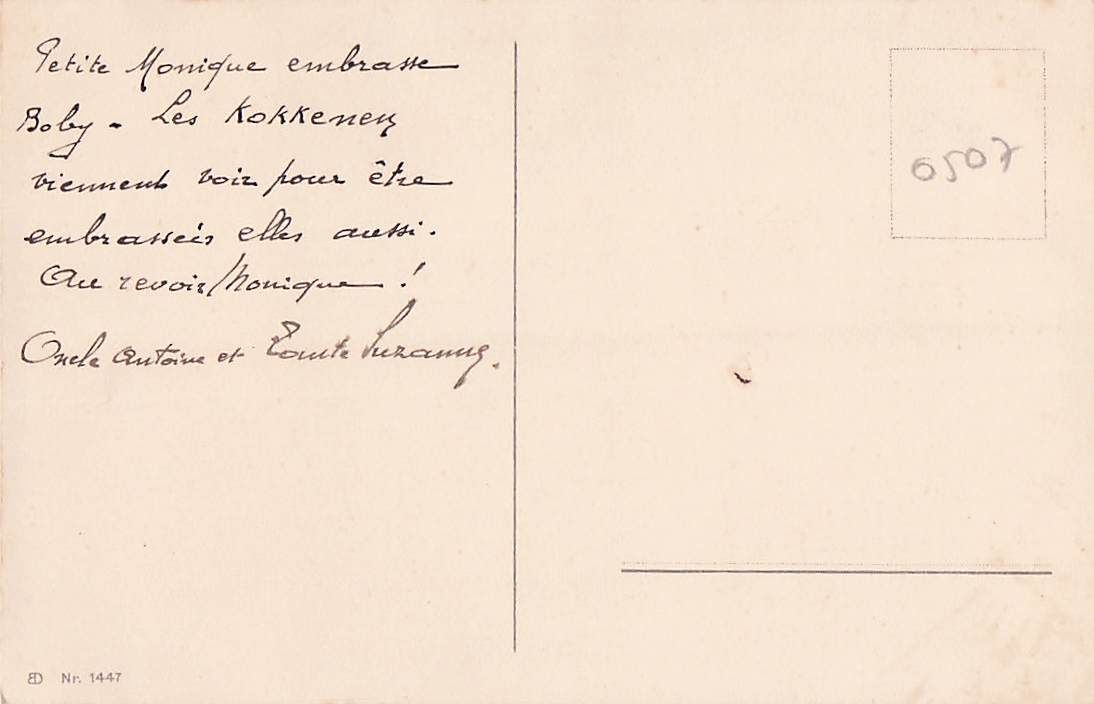 Petite Monique embrasse
Boby - Les Kokkenen
viennent voir pour être
embrassées elles aussi.
Au revoir Monique !
Oncle Antoine et Tante Suzanne.
0507
Nr. 1447